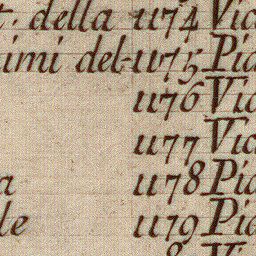 t. della 1174 Vic
imi del- 1175 Pia
1176 Vic
1177 Vic
a 1178 Pia
le 1179 Pia